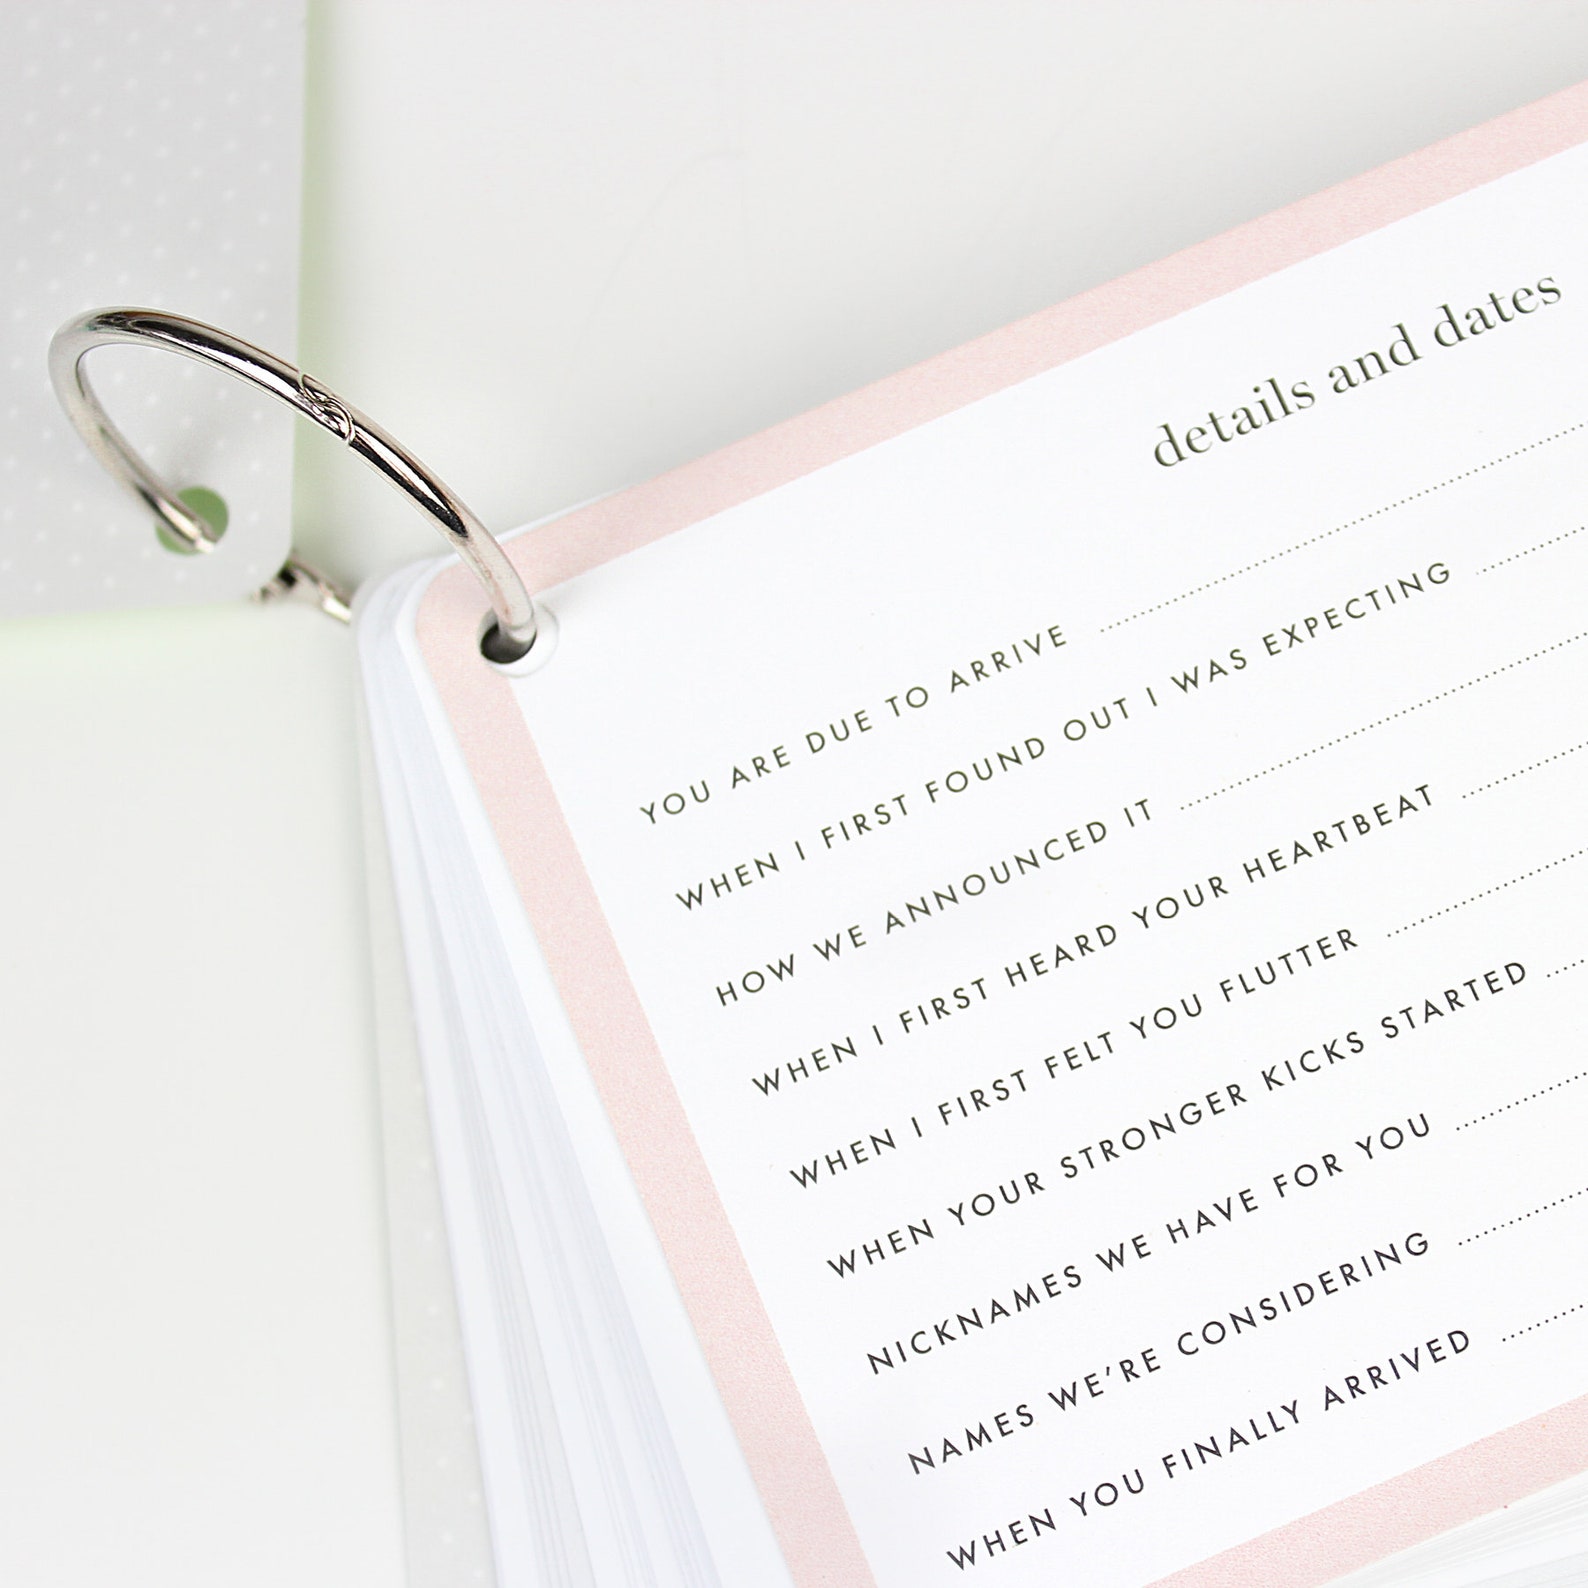 details and dates
YOU ARE DUE TO ARRIVE
WHEN I FIRST FOUND OUT I WAS EXPECTING
HOW WE ANNOUNCED IT
WHEN I FIRST HEARD YOUR HEARTBEAT
WHEN I FIRST FELT YOU FLUTTER
WHEN YOUR STRONGER KICKS STARTED
NICKNAMES WE HAVE FOR YOU
NAMES WE'RE CONSIDERING
WHEN YOU FINALLY ARRIVED